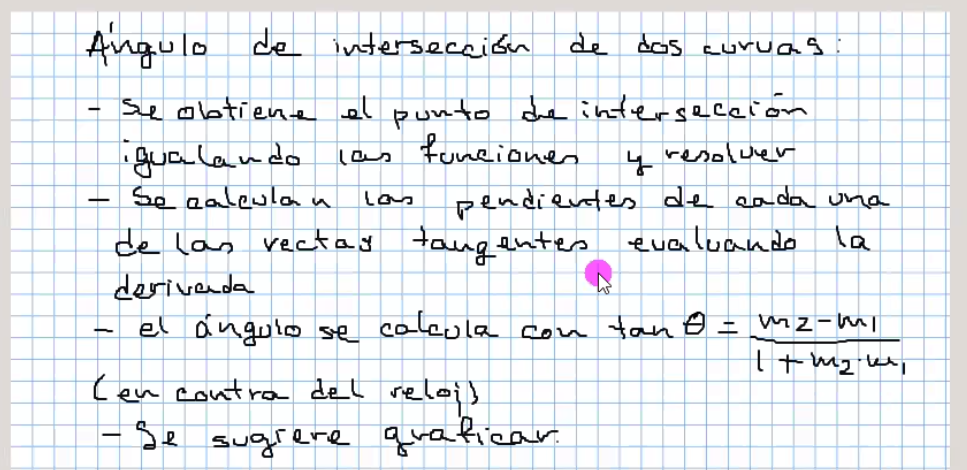 Ángulo de intersección de dos curvas:
- Se obtiene el punto de intersección
igualando las funciones y resolver
- Se calculan las pendientes de cada una
de las rectas tangentes evaluando la
derivada
- el ángulo se calcula con tan θ = (m2 - m1) / (1 + m2 · m1)
(en contra del reloj)
- Se sugiere graficar.